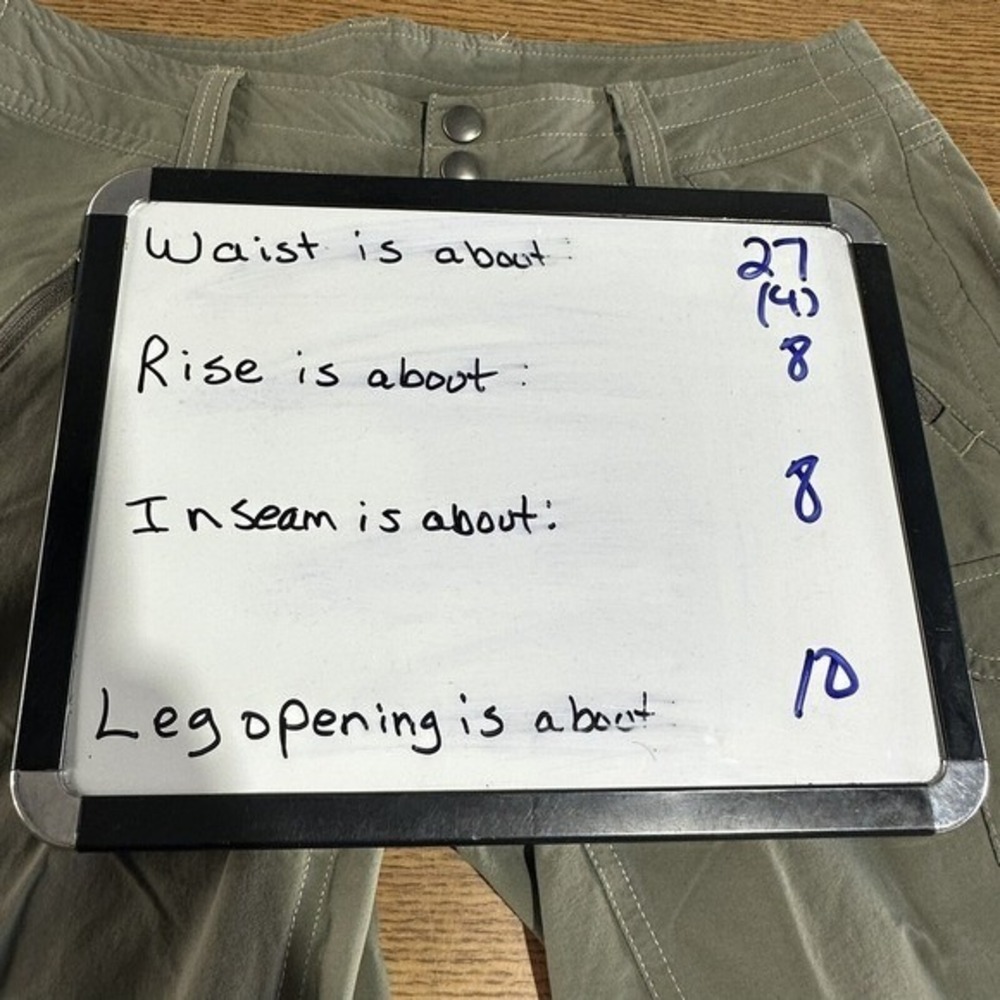 Waist is about 27
(4)
Rise is about : 8
Inseam is about: 8
Leg opening is about 10